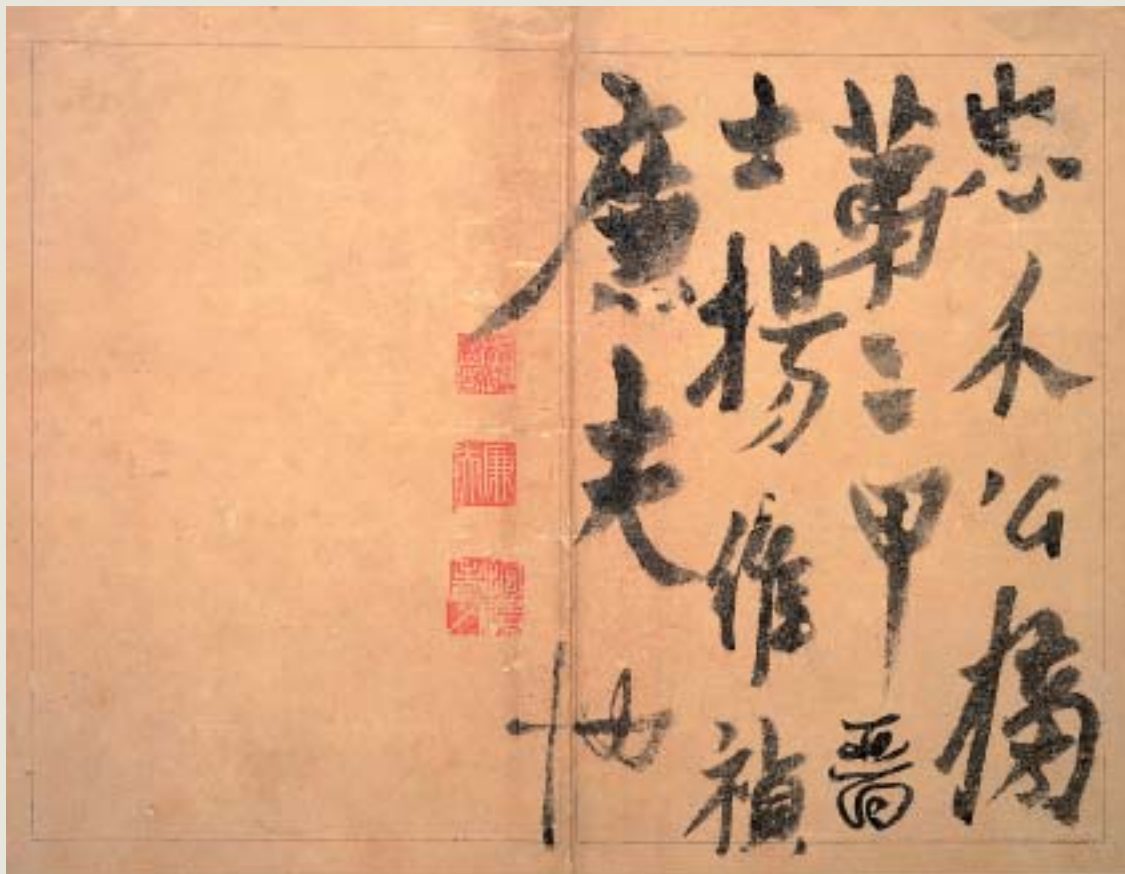 忠文公榜
第二甲晋
士楊維禎
廉夫
廉夫